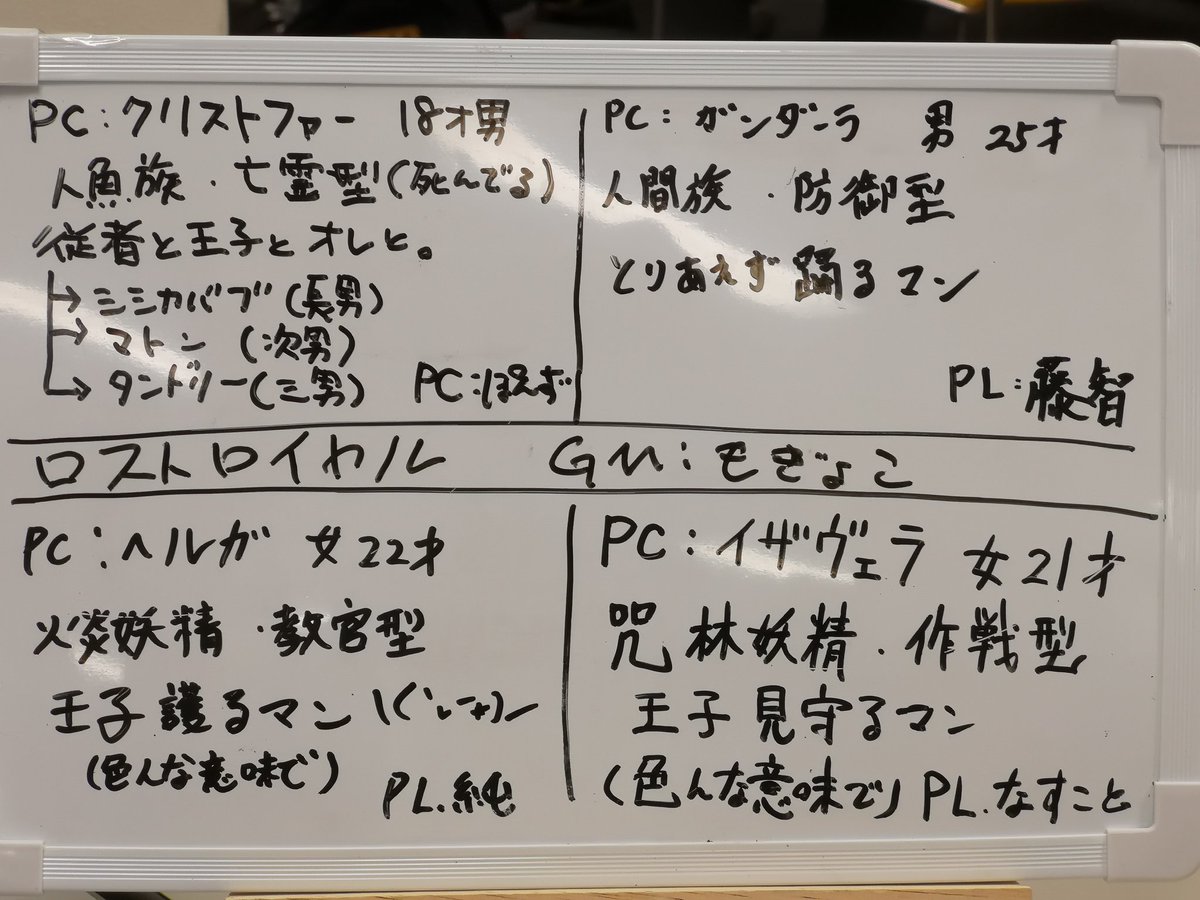 PC:クリストファー 18才男
人魚族・亡霊型(死んでる)
従者と王子とオレと。
→シシカバブ(長男)
→マトン(次男)
→タンドリー(三男) PC:ぽえず
PC:ガンダーラ 男 25才
人間族・防御型
とりあえず踊るマン
PL:藤智
ロストロイヤル GM:もぎょこ
PC:ヘルガ 女22才
火炎妖精・教官型
王子護るマン
(色んな意味で)
PL.純
PC:イザヴェラ 女21才
咒林妖精・作戦型
王子見守るマン
(色んな意味で) PL.なすこと